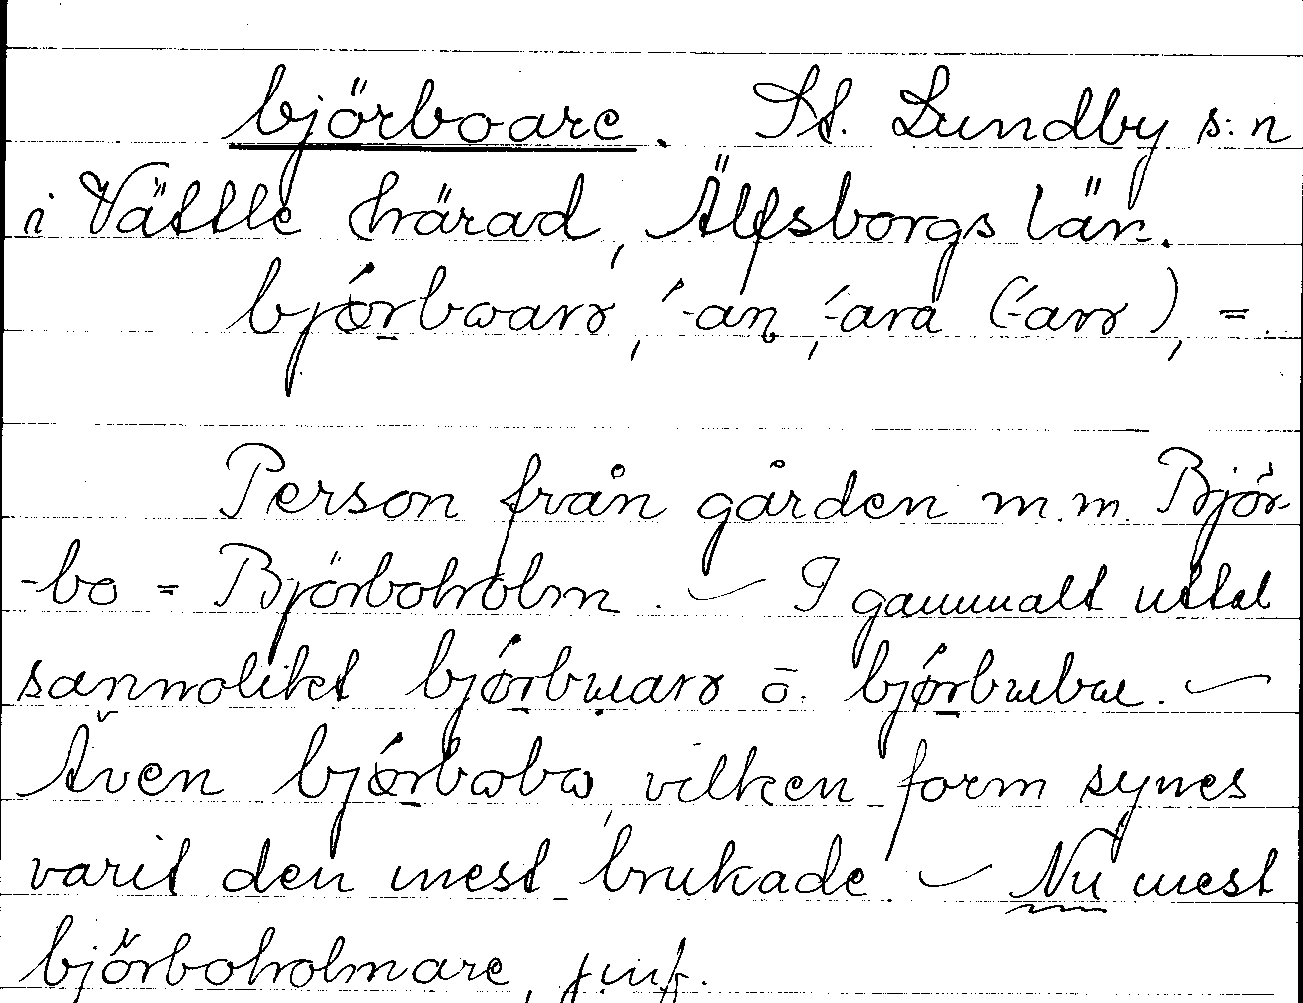 björboare. St. Lundby s:n
i Vättle härad, Älfsborgs län.
bjǿrbωarɘ, ́-an, ́-ara (́-arɘ), =.
Person från gården m.m. Björ-
-bo = Björboholm. – I gammalt uttal
sannolikt bjǿrbuarɘ ō. bjǿrbubu. –
Även bjǿrbωbω, vilken form synes
varit den mest brukade. – Nu mest
björboholmare, jmf.